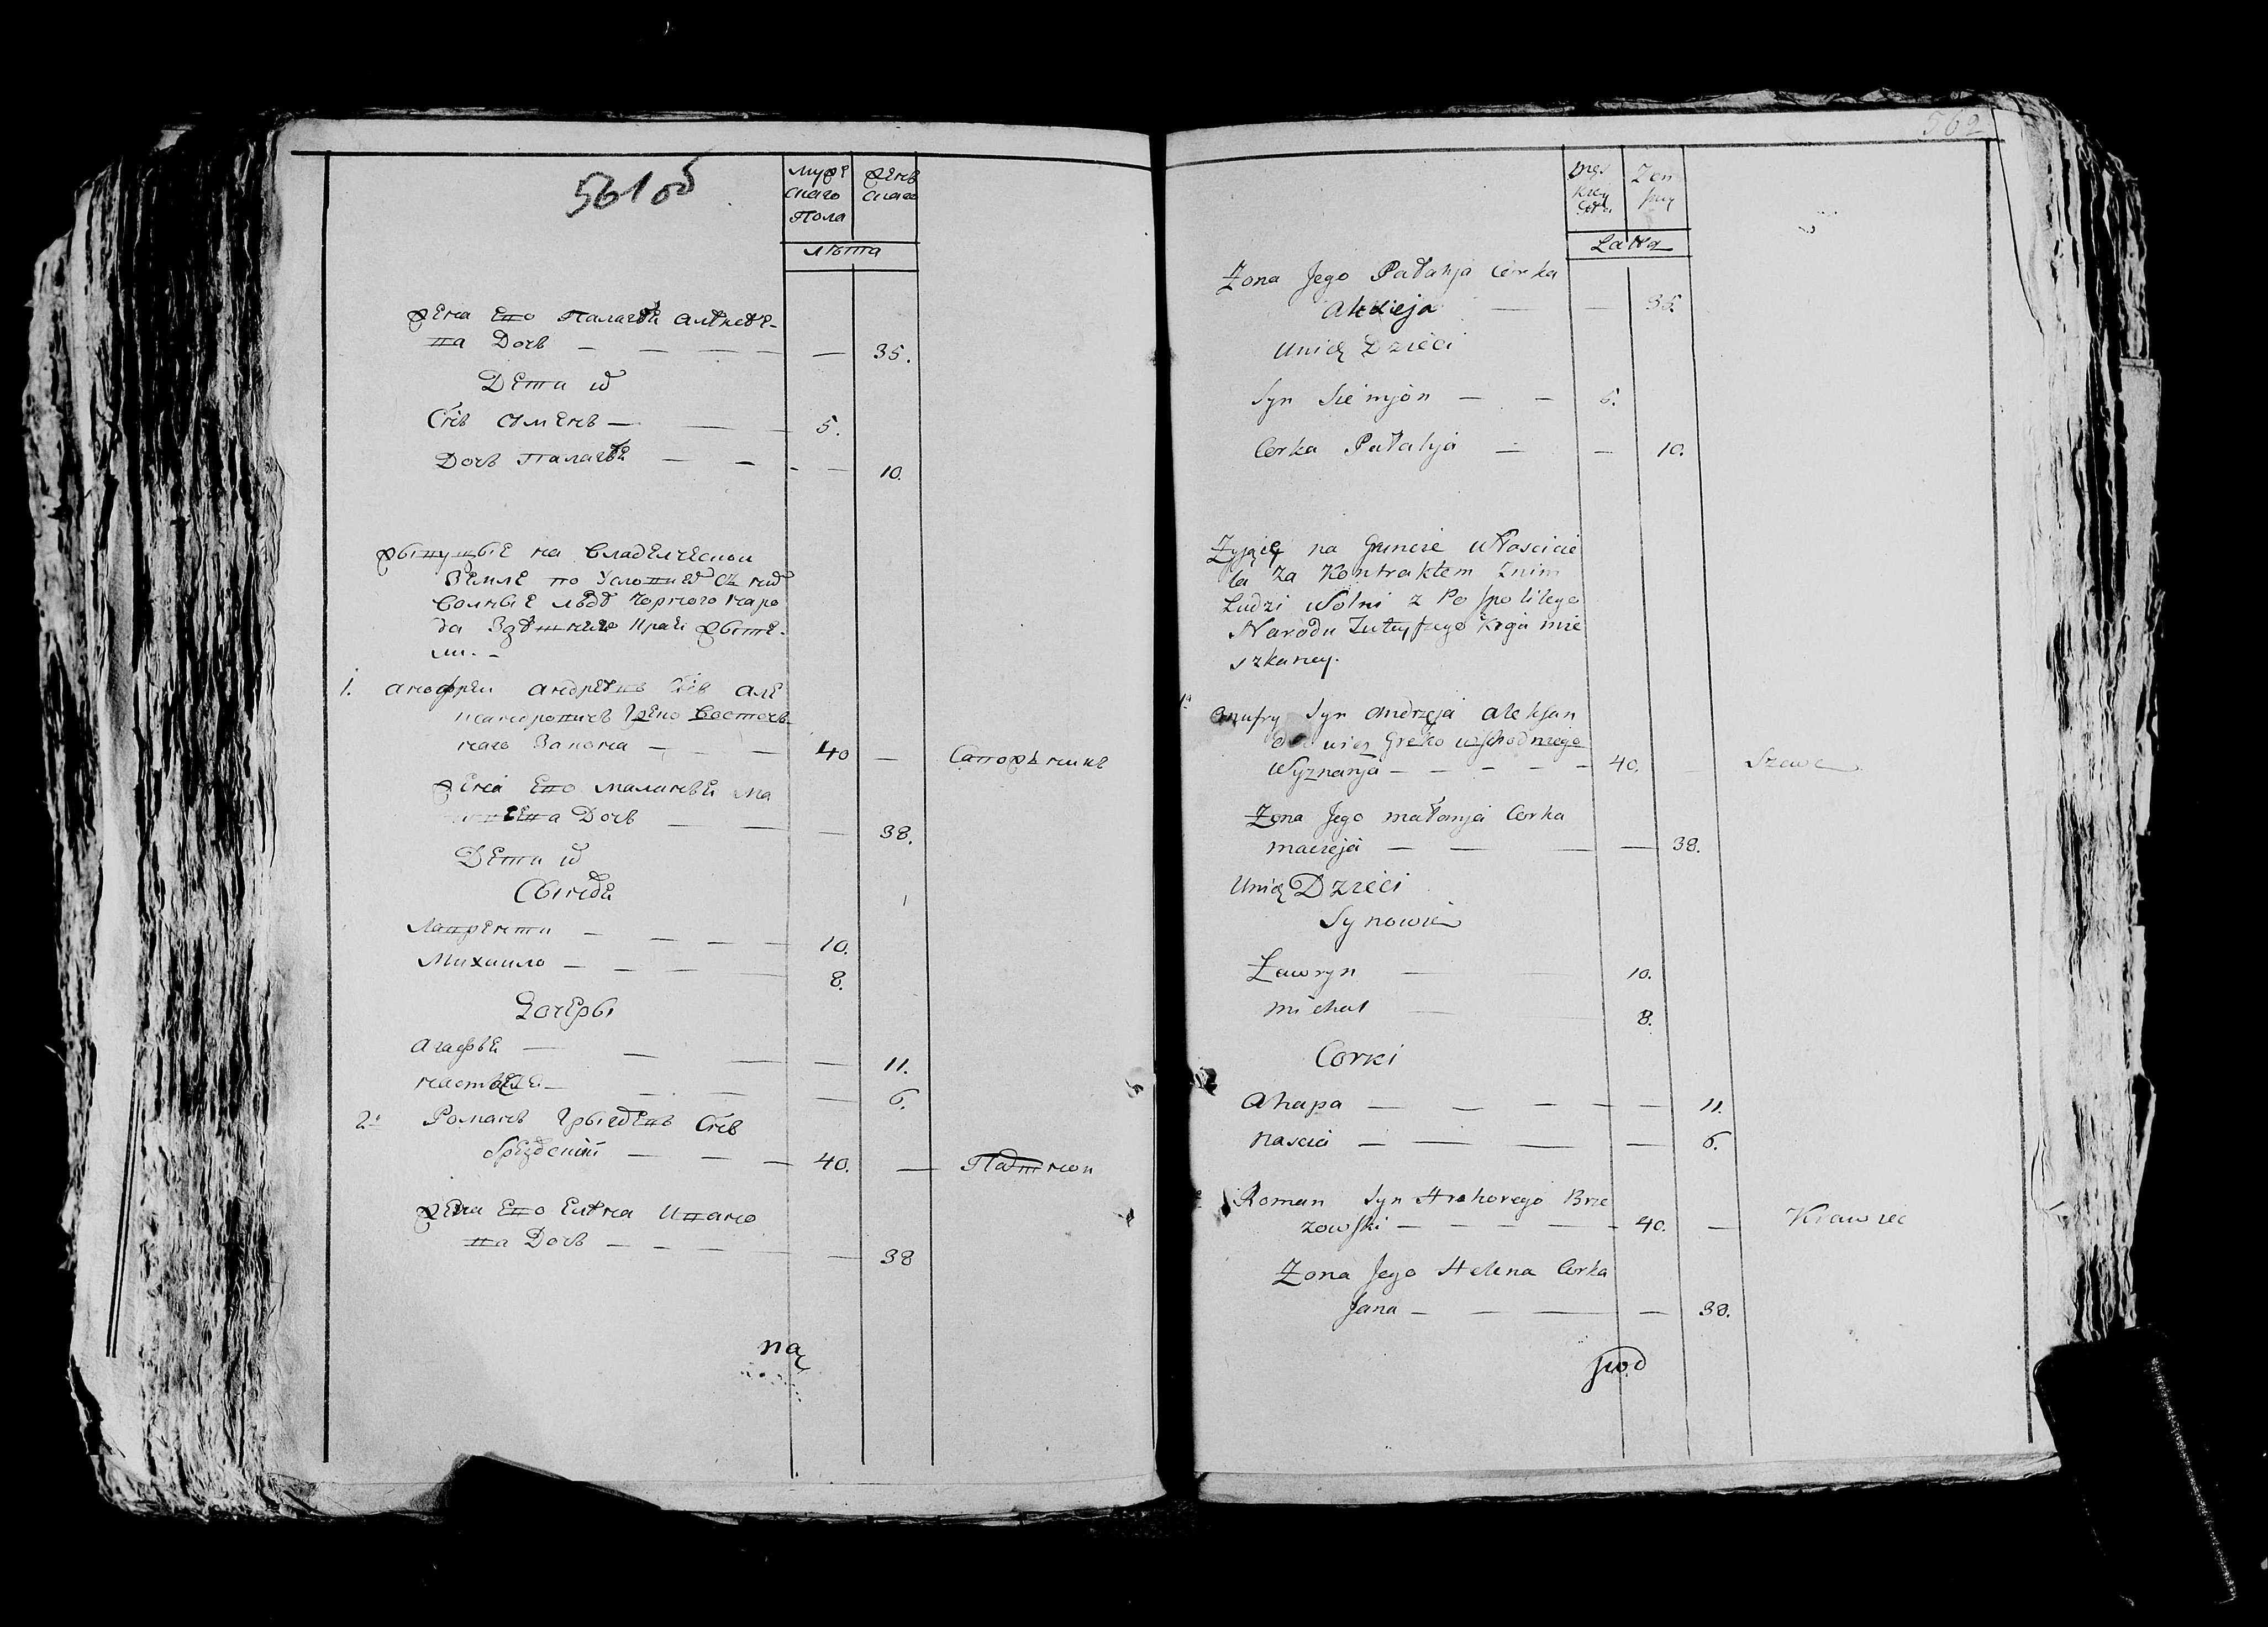 561 об
муже
скаго
Пола
женъ
скаго
лѣта
жена Его Палагѣя Алѣксѣе-
ва Дочь — — — — — 35.
Дети ихъ
Снъ Сѣменъ — — — 5.
Дочь Палагѣя — — - — 10.
живущые на Владелческои
Земле по Условиехъ съ нимъ
волные люди Чорного наро
да Здѣшнего Края жите-
ли. -
1. Анофреи Андреевъ Снъ Але
ксандровичъ Греко Восточъ-
наго Закона — — — 40 — Сапожникъ
жена Его Маланья Ма
Дочь — — — 38.
Дети ихъ
Сыновя
Лаврентии — — — — 10.
Михаило — — — — 8.
Дочеры
Агафья — — — — 11.
Настасея — — — — 6.
2. Романъ Снъ
— — — 40. — Партнои
жена Его Елена Ивано
ва Дочь — — — — — 38
na
562
męs
kiey
Żen
skiey
Latta
Zona Jego Pałahja Corka
Alexieja — — 35.
Unich Dzieci
Syn Siemjon — — 5.
Corka Pałahja — — 10.
Zyjące na Gruncie Właścicie
la Za Kontraktem Znim
Ludzi Wolni z Pospolitego
Narodu Tuteyszego Kraja mie
szkancy.
1. Onufry Syn Andrzeja Aleksan
drowicz Greko wschodniego
Wyznanja — — — — — 40. — Szewc
Zona Jego małanja Corka
macieja — — — — 38.
Unich Dzieci
Synowie
Ławryn — — 10.
michał — — 8.
Corki
Ahapa — — — — — 11.
Nascia — — — — 6.
Roman Syn Hrehorego Brze
zowski — — — — — 40. — Krawiec
Zona Jego Helena Corka
Jana — — — — 38.